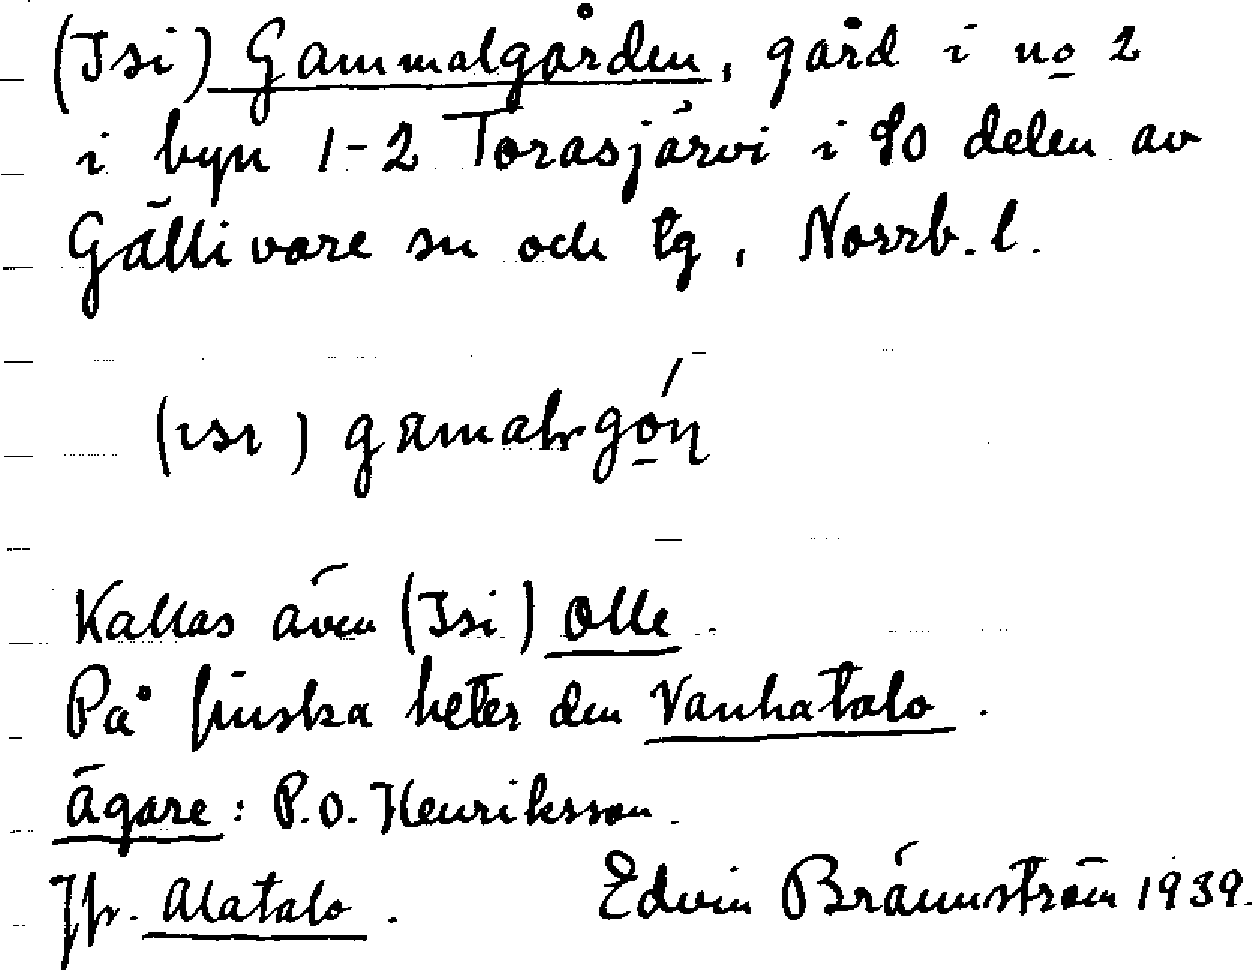 (Isi) Gammalgården, gård i no 2
i byn 1-2 Torasjärvi i SO delen av
Gällivare sn och tg, Norrb. l.
(ısı)
Kallas även (Isi) Olle.
På finska heter den Vanhatalo.
Ägare: P.O. Henriksson.
Jfr. Alatalo. Edvin Brännström 1939.